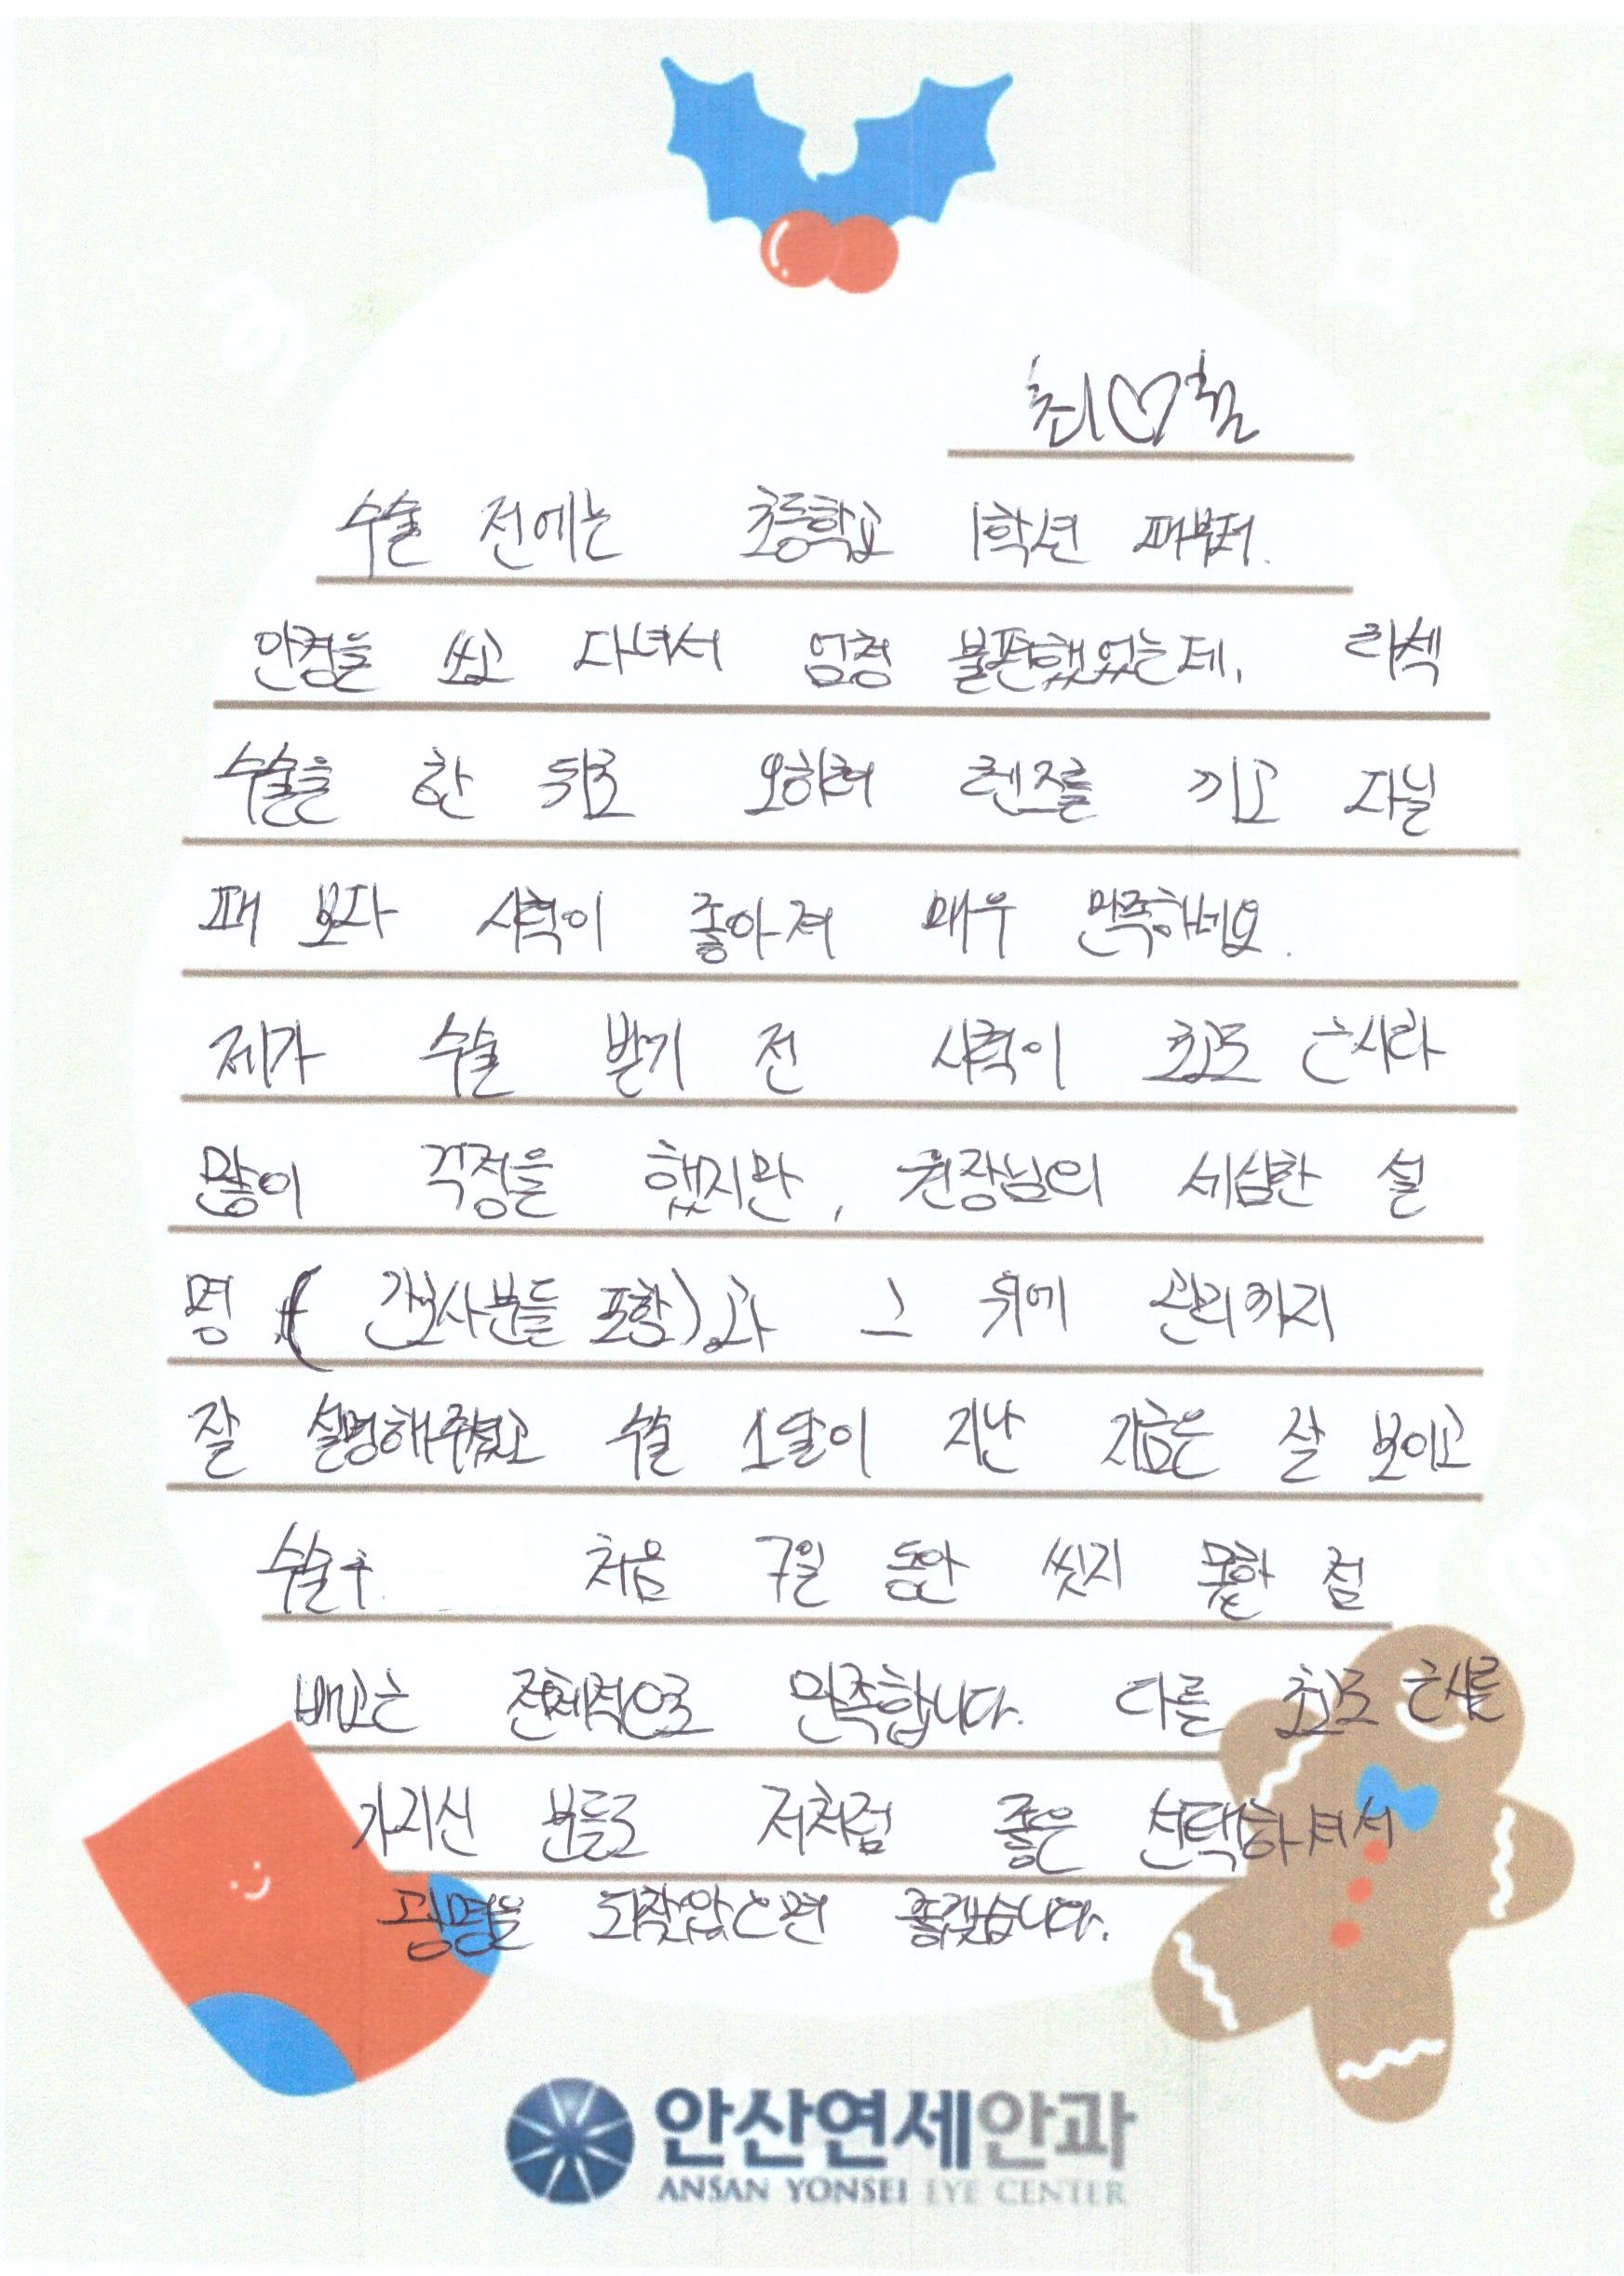 최♡림
수술 전에는 초등학교 1학년 때부터.
안경을 쓰고 다녀서 엄청 불편했었는데, 라섹
수술을 한 뒤로 오히려 렌즈를 끼고 다닐
때 보다 시력이 좋아져 매우 만족하네요.
제가 수술 받기 전 시력이 초고도 근시라
많이 걱정을 했지만, 원장님의 세심한 설
명 (간호사분들 포함)과 그 뒤에 관리까지
잘 설명해주셨고 수술 1달이 지난 지금은 잘 보이고
수술후 처음 7일 동안 씻지 못한 점
빼고는 전체적으로 만족합니다. 다른 초고도 근시를
가지신 분들도 저처럼 좋은 선택하셔서
광명을 되찾았으면 좋겠습니다.
안산연세안과
ANSAN YONSEI EYE CENTER